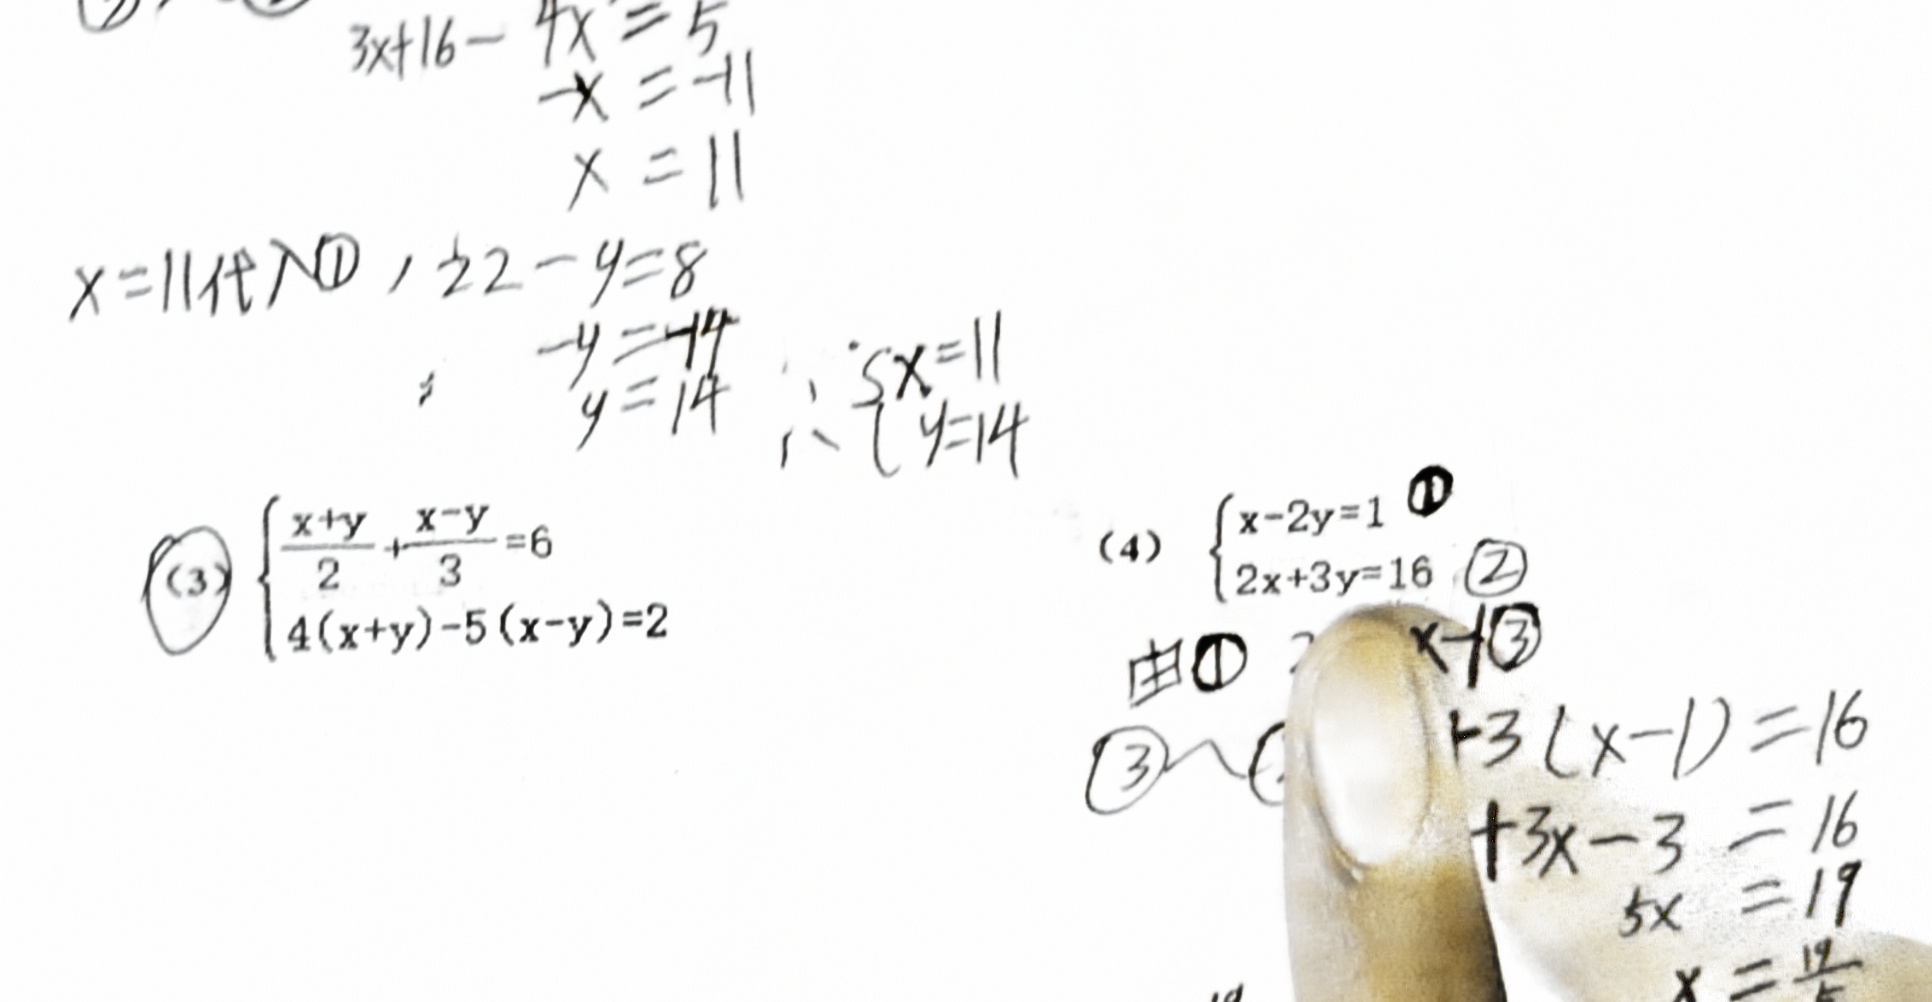 3x+16-4x=5
-x=-11
x=11
x=11代入①,22-y=8
-y=-14
y=14
∴{x=11
y=14
(3) {(x+y)/2+(x-y)/3=6
4(x+y)-5(x-y)=2
(4) {x-2y=1 ①
2x+3y=16 ②
由① x-1③
③ +3(x-1)=16
+3x-3=16
5x=19
x=19/5